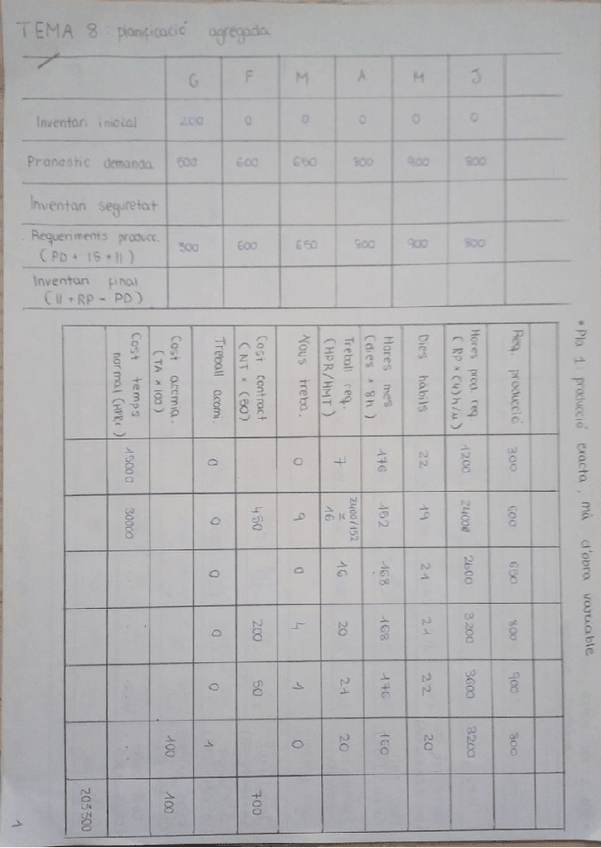 TEMA 8: planificació agregada
G F M A M J
Inventari inicial 200 0 0 0 0 0
Pronostic demanda 500 600 650 800 900 800
Inventari seguretat
Requeriments producc. (PD + IS + II) 300 600 650 800 900 800
Inventari final (II + RP - PD)
* Pla 1: producció exacta, mà d'obra variable
Req. producció 300 600 650 800 900 800
Hores prod req (RP x (4)h/u) 1200 2400 2600 3200 3600 3200
Dies hàbils 22 19 21 21 22 20
Hores mes (dies x 8h) 176 152 168 168 176 160
Treball req. (HPR/HMT) 7 2400/152 = 16 16 20 21 20
Nous treba. 0 9 0 4 1 0
Cost contract (NT x (50) 450 200 50 700
Treball acomi. 0 0 0 0 0 1
Cost acomia. (TA x 100) 100 100
Cost temps normal (HPRx ) 15000 30000 ... ... ... ...
203500
1